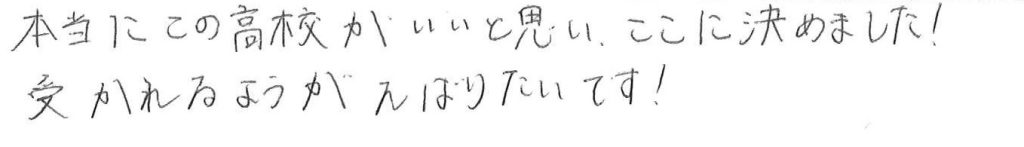 本当にこの高校がいいと思い、ここに決めました!
受かれるようがんばりたいです!